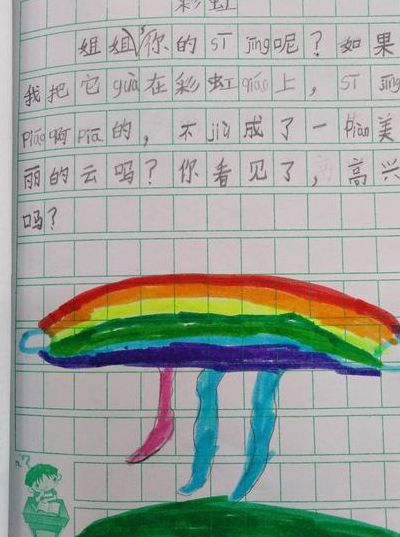 彩虹
姐姐，你的sī jīng呢？如果
我把它guà在彩虹qiáo上，sī jīng
piāo啊piāo的，不jiù成了一piàn美
丽的云吗？你看见了，高兴
吗？